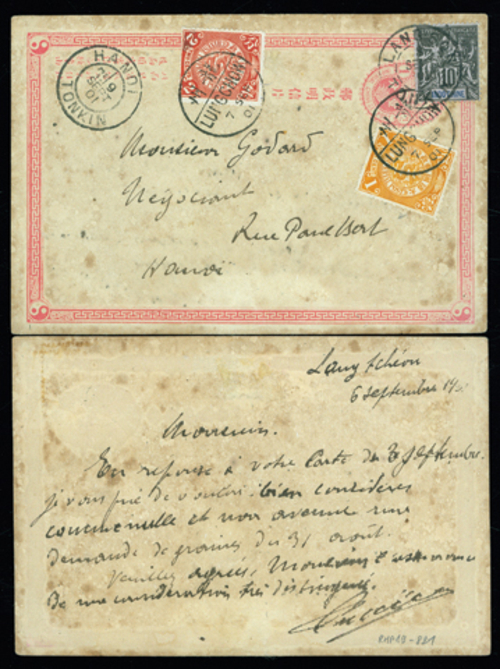 HANOI
9
SEPT
01
TONKIN
2
LUNGCHOW
7 SEP
01
LANG
10
LUNGCHOW
7 SEP
01
1
郵政明信片
Monsieur Godard
Négociant
Rue Paul Bert
Hanoï
Lang tchéou
6 septembre
Monsieur.
En réponse à votre carte du 3 Septembre.
je vous prie de vouloir bien considérer
comme nulle et non avenue ma
demande de graines du 31 août.
Veuillez agréer, Monsieur l'assurance
de ma considération très distinguée.